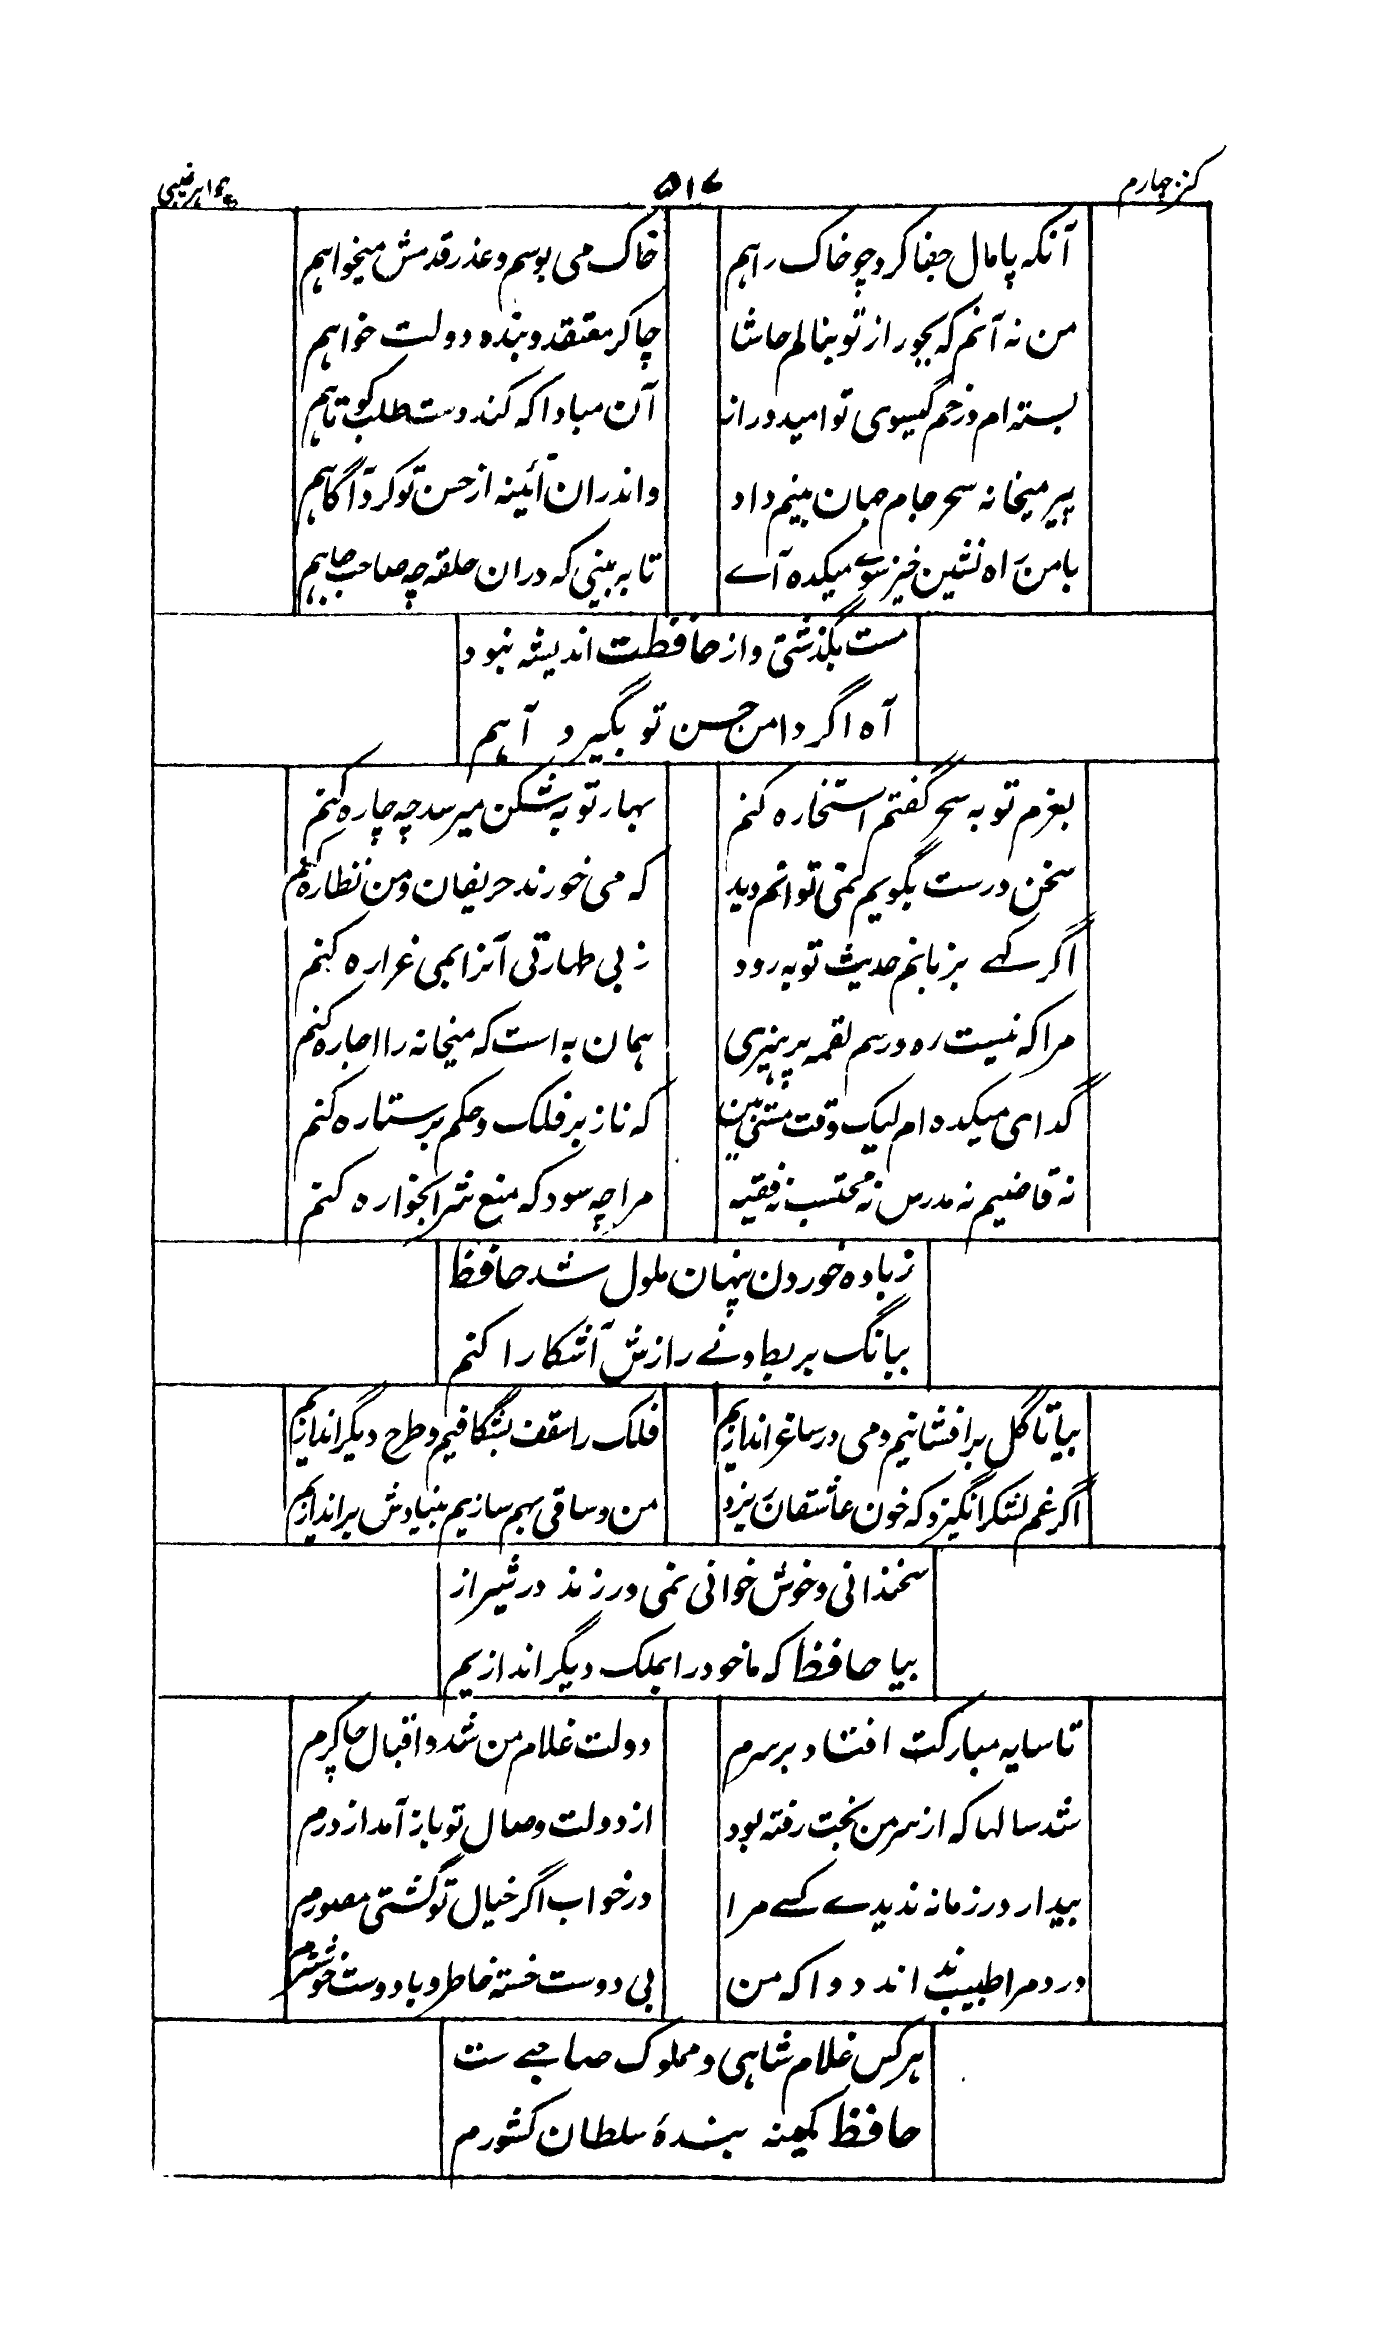 کنز چهارم ۵۱۷ جواهر غیبی
آنکه پامال جفا کرد چو خاک راهم خاک می بوسم و عذر قدمش میخواهم
من نه آنم که بجور از تو بنالم حاشا چاکر معتقد و بنده دولت خواهم
بسته ام در خم گیسوی تو امید دراز آن مبادا که کند دست طلب کوتاهم
پیر میخانه سحر جام جهان بینم داد و اندران آئینه از حسن تو کرد آگاهم
با من راه نشین خیز سوے میکده آے تا به بینی که دران حلقه چه صاحب جاهم
مست بگذشتی و از حافظت اندیشه نبود
آه اگر دامن حسن تو بگیرد آهم
بعزم توبه سحر گفتم استخاره کنم بهار توبه شکن میرسد چه چاره کنم
سخن درست بگویم نمی توانم دید که می خورند حریفان و من نظاره کنم
اگر کسے بزبانم حدیث توبه رود ز بی طهارتی آنرا بمی غراره کنم
مرا که نیست ره و رسم لقمه پرهیزی همان به است که میخانه را اجاره کنم
گدای میکده ام لیک وقت مستی بین که ناز بر فلک و حکم بر ستاره کنم
نه قاضیم نه مدرس نه محتسب نه فقیه مرا چه سود که منع شرابخواره کنم
ز باده خوردن پنهان ملول شد حافظ
ببانگ بربط و نے رازش آشکارا کنم
بیا تا گل برافشانیم و می در ساغر اندازیم فلک را سقف بشگافیم و طرح دیگر اندازیم
اگر غم لشکر انگیزد که خون عاشقان ریزد من و ساقی بهم سازیم بنیادش براندازیم
سخندانی و خوش خوانی نمی ورزند در شیراز
بیا حافظ که ما خود را بملک دیگر اندازیم
تا سایه مبارکت افتاد بر سرم دولت غلام من شد و اقبال چاکرم
شد سالها که از سر من بخت رفته بود از دولت وصال تو باز آمد از درم
بیدار در زمانه ندیدے کسے مرا در خواب اگر خیال تو گشتی مصورم
درد مرا طبیب نداند دوا که من بی دوست خسته خاطر و با دوست خوشترم
هر کس غلام شاهی و مملوک صاحبے ست
حافظ کمینه بندهٔ سلطان کشورم